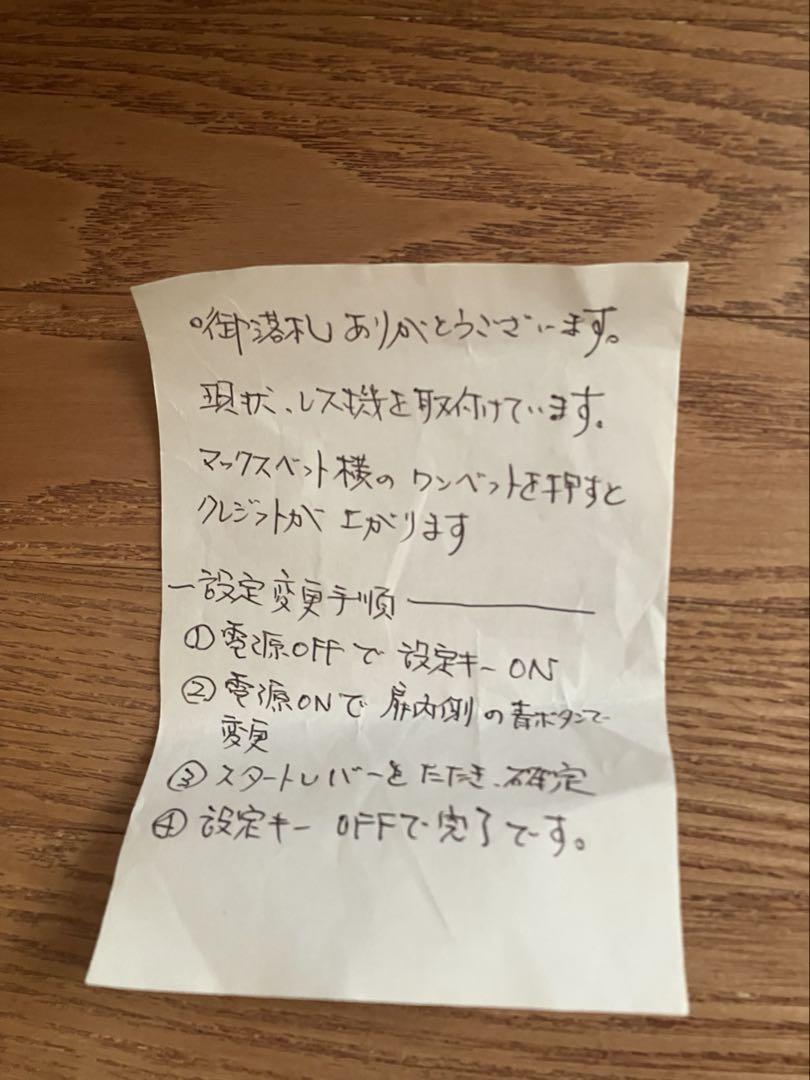 ○御落札ありがとうございます。
現状、レス機を取付けています。
マックスベット横のワンベットを押すと
クレジットが上がります
ー設定変更手順ーーーーー
①電源OFFで設定キーON
②電源ONで扉内側の青ボタンで
変更
③スタートレバーをたたき、確定
④設定キーOFFで完了です。